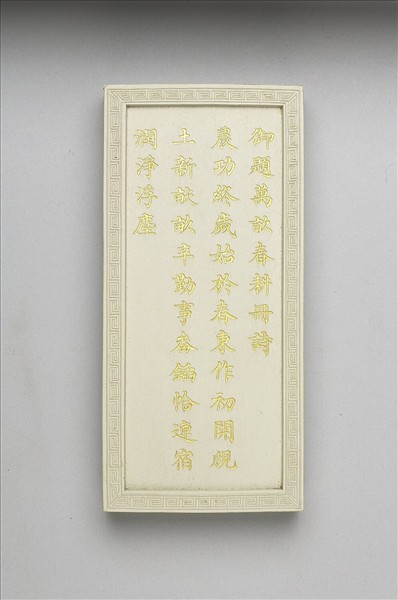 御題萬畝春耕冊詩
農功終歲始於春東作初開覛
土新畎畝辛勤事畚鍤恰逢宿
潤淨浮塵